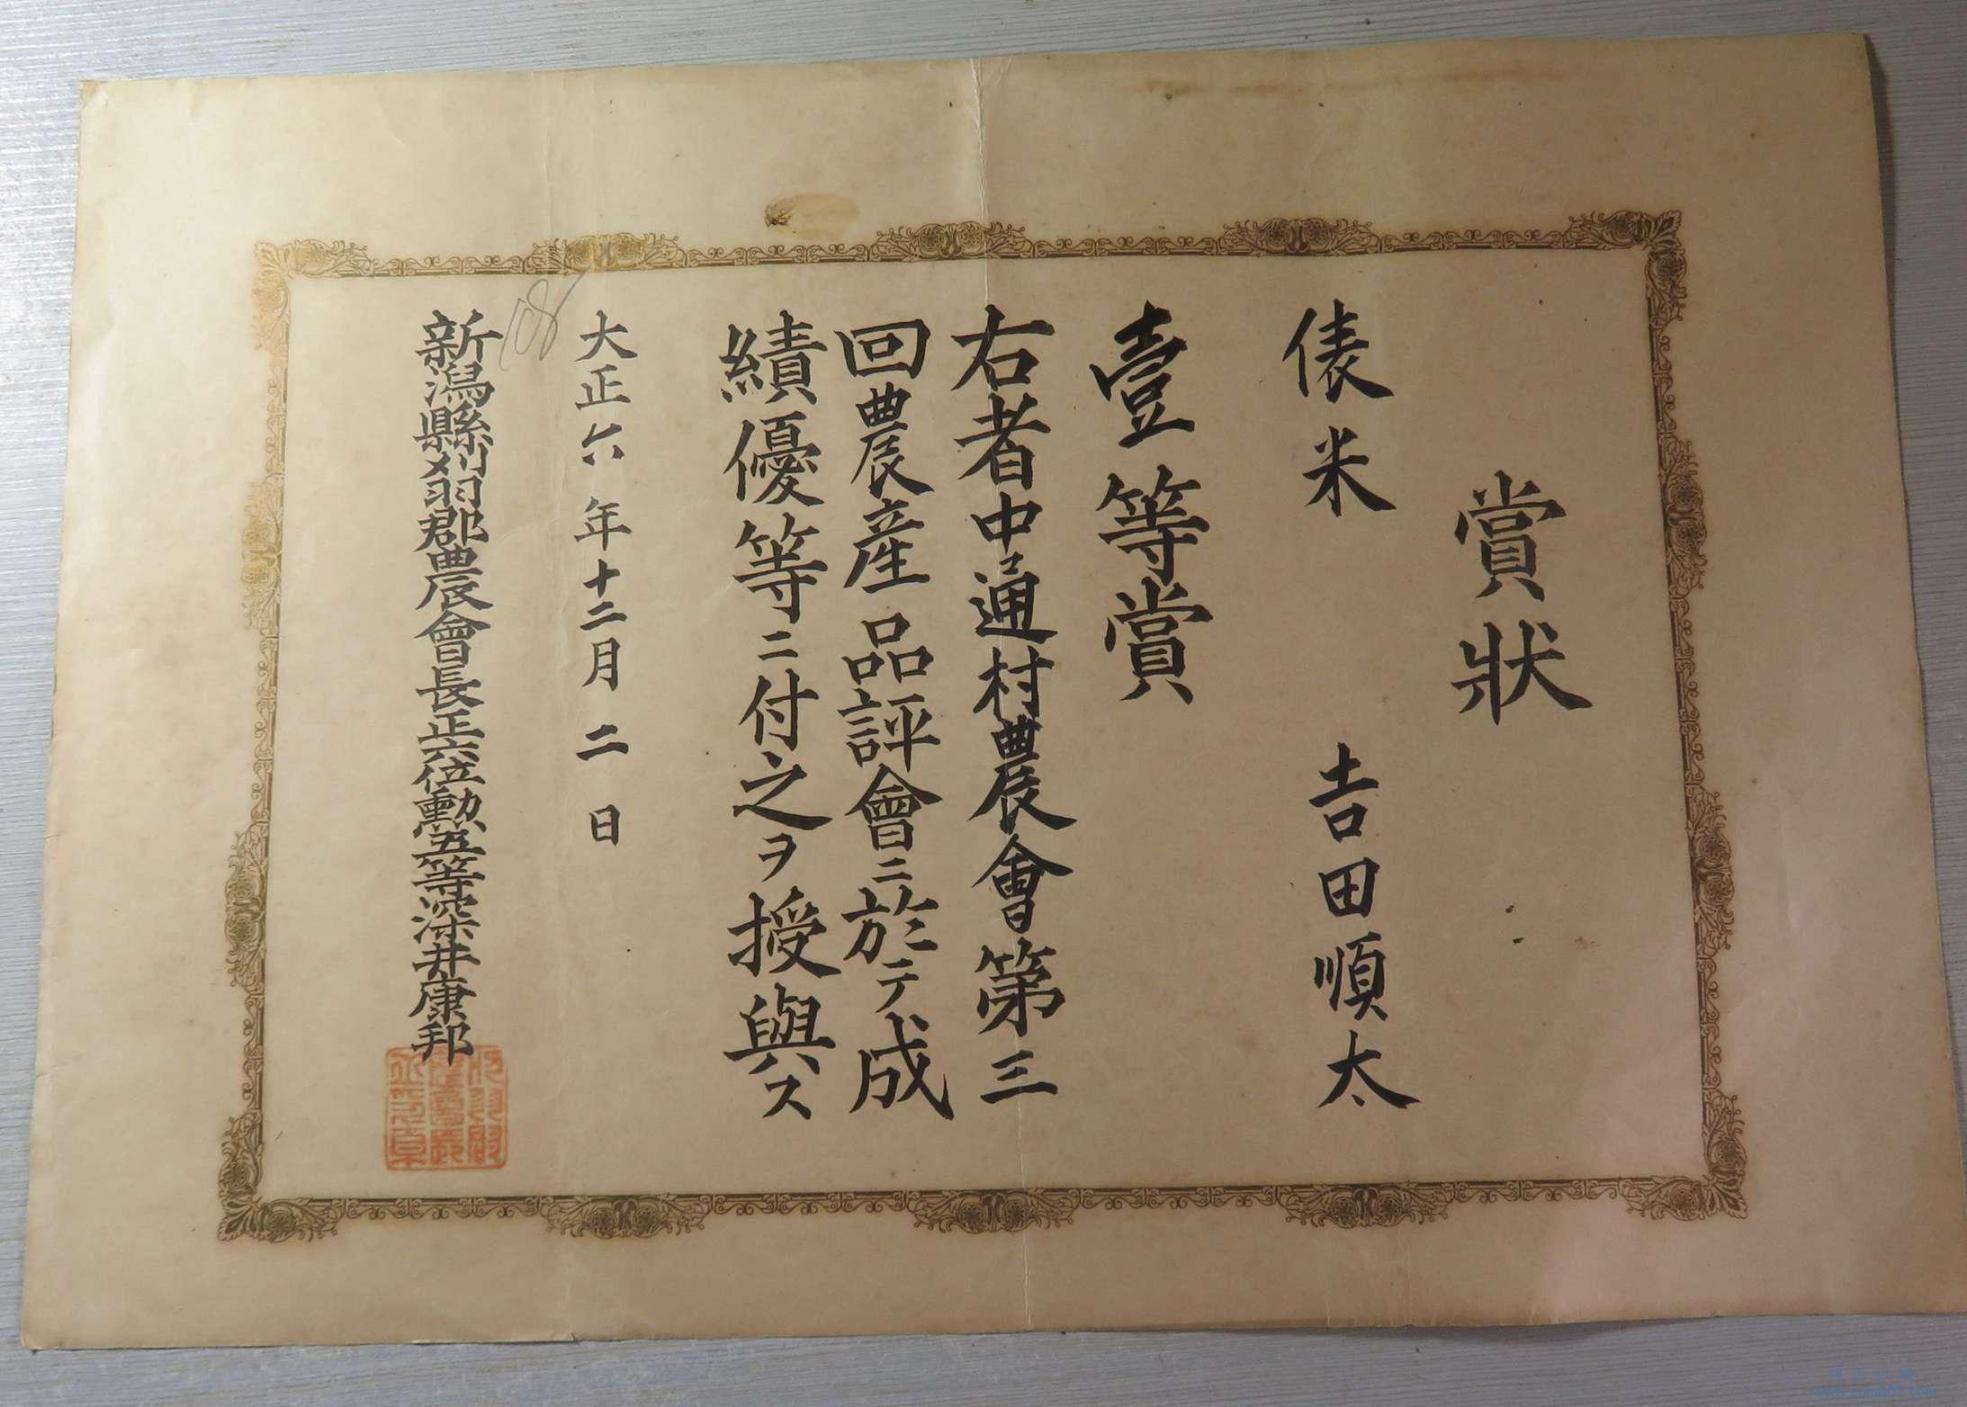 賞狀
俵米 吉田順太
壹等賞
右者中通村農會第三
回農產品評會ニ於テ成
績優等ニ付之ヲ授與ス
大正六年十二月二日
新潟縣刈羽郡農會長正六位勲五等深井康邦
108